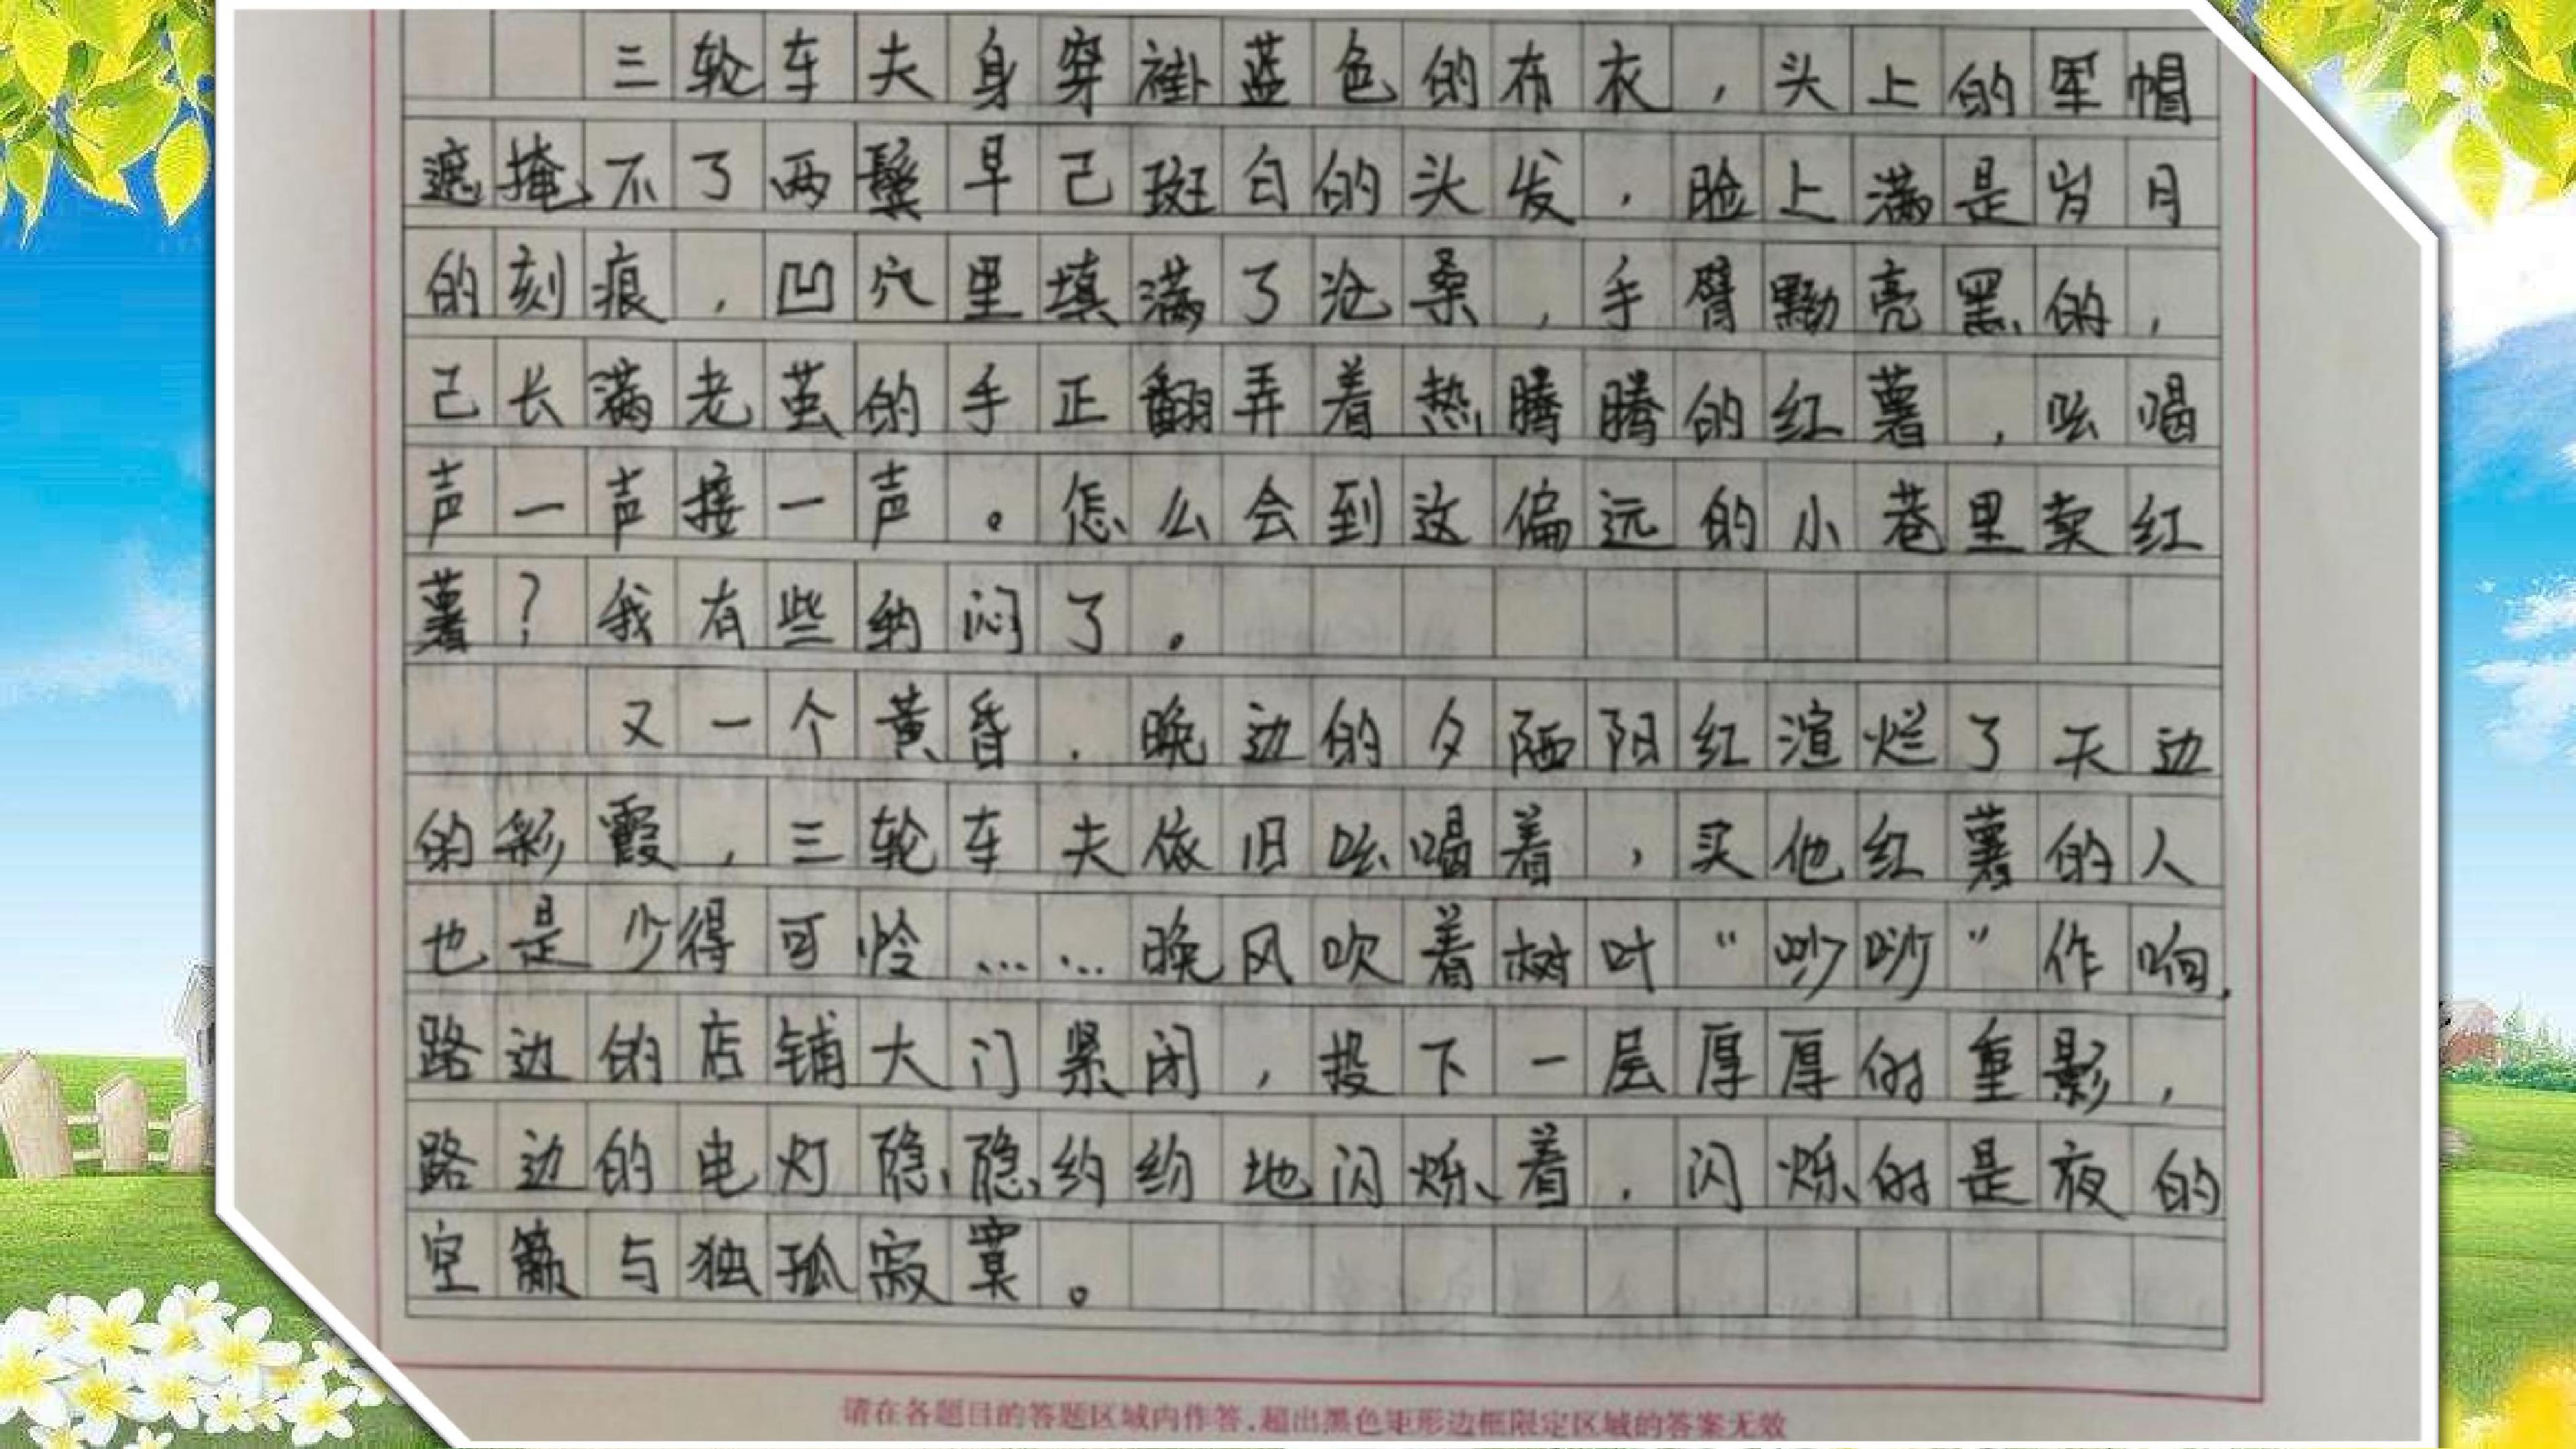 三轮车夫身穿褂蓝色的布衣，头上的军帽
遮掩不了两鬓早已斑白的头发，脸上满是岁月
的刻痕，凹穴里填满了沧桑，手臂黝亮黑的，
已长满老茧的手正翻弄着热腾腾的红薯，吆喝
声一声接一声。怎么会到这偏远的小巷里卖红
薯？我有些纳闷了。
又一个黄昏，晚边的夕陋阳红渲烂了天边
的彩霞，三轮车夫依旧吆喝着，买他红薯的人
也是少得可怜……晚风吹着树叶“吵吵”作响，
路边的店铺大门紧闭，投下一层厚厚的重影，
路边的电灯隐隐约约地闪烁着，闪烁的是夜的
空与独孤寂寞。
请在各题目的答题区域内作答，超出黑色矩形边框限定区域的答案无效